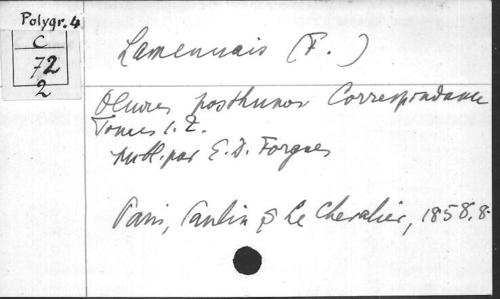 Polygr. 4
C
72
2
Lamennais (F.)
Œuvres posthumes Correspondance
Tomes 1. 2.
publ. par E. D. Forgues
Paris, Paulin & Le Chevalier, 1858. 8